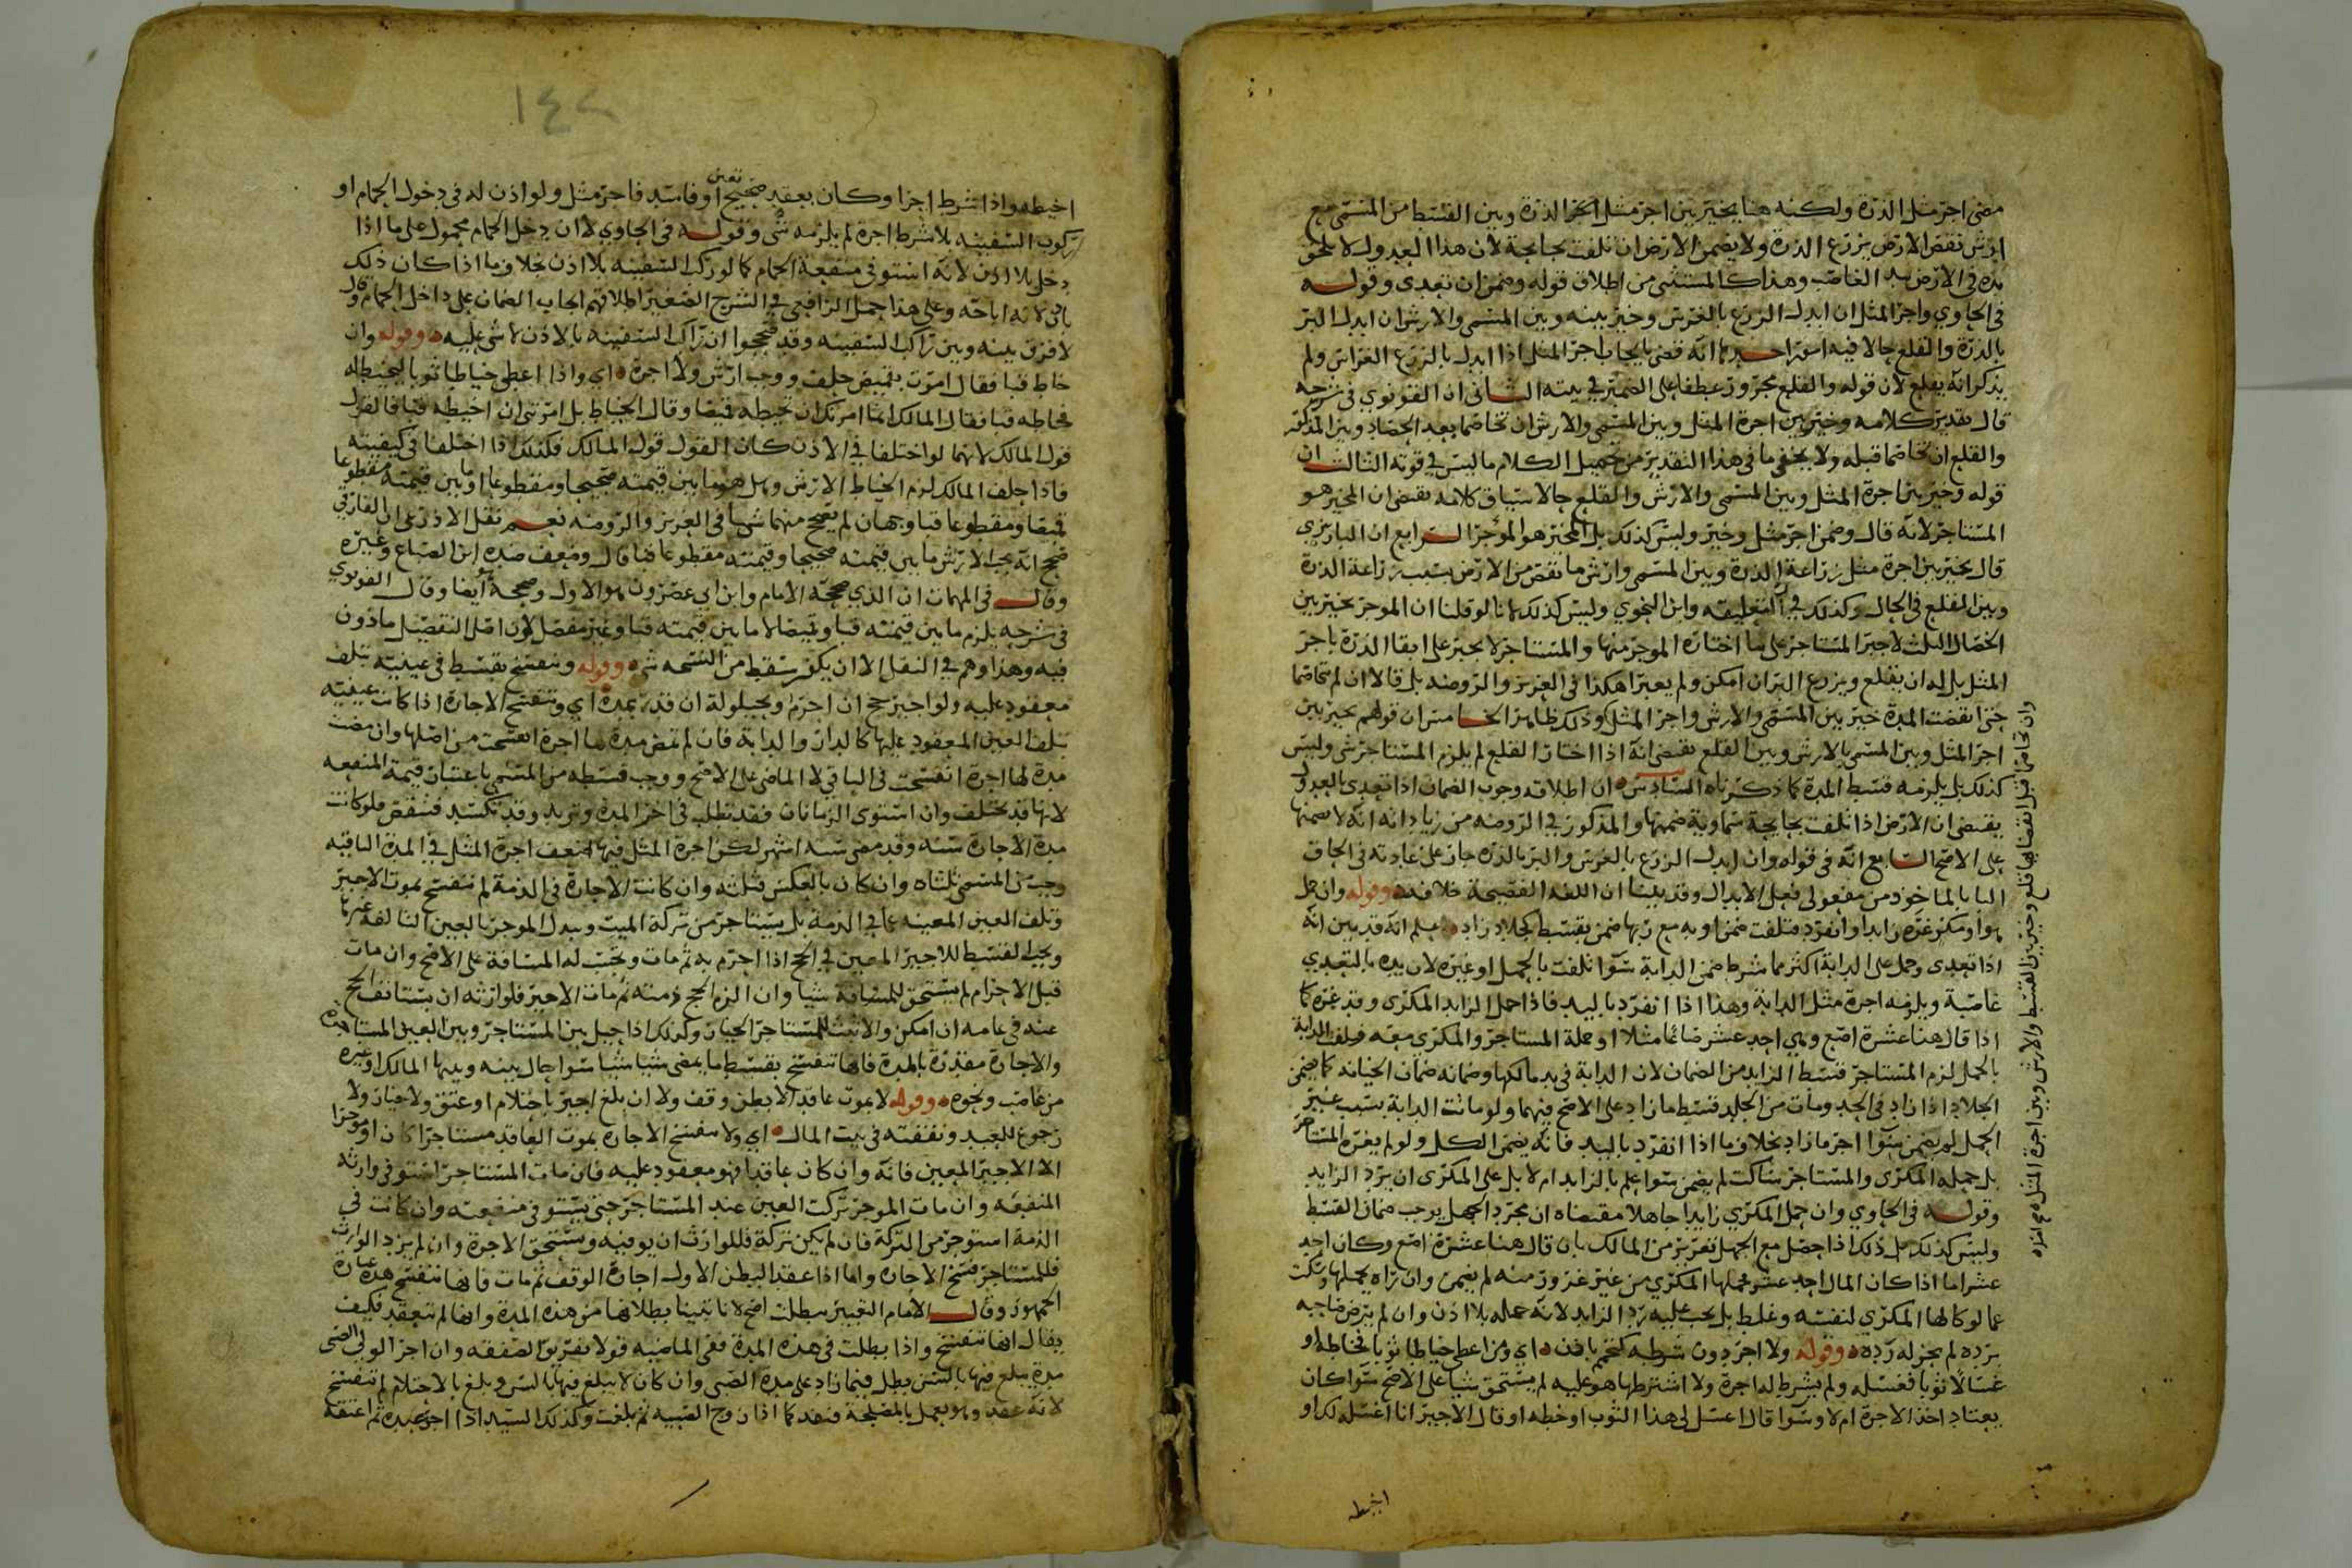 مضى اجر مثل الذرة ولكنه هنا يخير بين اجر مثل الذرة وبين القسط من المسمى مع
ارش نقص الارض بزرع الذرة ولا يضمن الارض ان تلفت بجايحة لان هذا العدول لا يلحق
يده في الارض بيد الغاصب وهذا كالمستثنى من اطلاق قوله وضمن ان تعدى وقوله
في الحاوي واجر المثل ان ابدل الزرع بالغرس وخير بينه وبين المسمى والارش ان ابدل البر
بالذرة والقلع حالا فيه امور احدها انه قضى بايجاب اجر المثل اذا ابدل بالزرع الغراس ولم
يذكر انه يقلع لان قوله والقلع مجرور عطفا على الضمير في بينه الثاني ان القونوي في شرحه
قال تقدير كلامه وخير بين اجرة المثل وبين المسمى والارش ان تخاصما بعد الحصاد وبين المذكور
والقلع ان تخاصما قبله ولا يخفى ما في هذا التقدير من تحميل الكلام ما ليس في قوته الثالث ان
قوله وخير بين اجرة المثل وبين المسمى والارش والقلع حالا سياق كلامه يقتضي ان المخير هو
المستاجر لانه قال وضمن اجر مثل وخير وليس كذلك بل المخير هو الموجر الرابع ان البارزي
قال يخير بين اجرة مثل زراعة الذرة وبين المسمى وارش ما نقص من الارض بسبب زراعة الذرة
وبين القلع في الحال وكذلك في التعليقه وابن النحوي وليس كذلك لانا لو قلنا ان الموجر يخير بين
الخصال الثلث لاجبر المستاجر على ما اختاره الموجر منها والمستاجر لا يجبر على ابقا الذرة باجر
المثل بل له ان يقلع ويزرع البر ان امكن ولم يعبرا هكذا في العزيز والروضه بل قالا ان لم تخاصما
حتى انقضت المدة خير بين المسمى والارش واجر المثل وذلك ظاهر الخامس ان قولهم يخير بين
اجر المثل وبين المسمى بالارش وبين القلع يقتضي انه اذا اختار القلع لم يلزم المستاجر شي وليس
كذلك بل يلزمه قسط المدة كما ذكرناه السادس ان اطلاقه وجوب الضمان اذا تعدى بالعدول
يقتضي ان الارض اذا تلفت بجايحة سماوية ضمنها والمذكور في الروضه من زياداته انه لا يضمنها
على الاصح السابع انه في قوله وان ابدل الزرع بالغرس والبر بالذرة جار على عادته في الحاق
البا بالماخوذ من مفعولي فعل الابدال وقد بينا ان اللغه الفصيحة خلافه وقوله وان حمل
هو او مكر غره زايدا وانفرد فتلفت ضمن او به مع ربها ضمن بقسط كجلاد زاد يعلم انه قد بين انه
اذا تعدى وحمل على الدابة اكثر مما شرط ضمن الدابة سوا تلفت بالحمل او غيره لان يده بالتعدي
غاصبة ويلزمه اجرة مثل الدابة وهذا اذا انفرد باليد فاذا حمل الزايد المكري وقد غره كما
اذا قال هنا عشرة اصع وهي احد عشر صاعا مثلا او حمله المستاجر والمكري معه فتلف الدابة
بالحمل لزم المستاجر قسط الزايد من الضمان لان الدابة في يد مالكها وضمانه ضمان الجنايه كما يضمن
الجلاد اذا زاد في الحد ومات من الجلد قسط ما زاد على الاصح فيهما ولو ماتت الدابة بسبب غير
الحمل لم يضمن سوا اجر ما زاد بخلاف ما اذا انفرد باليد فانه يضمن الكل ولو لم يغره المستاجر
بل حمله المكري والمستاجر ساكت لم يضمن سوا علم بالزايد ام لا بل على المكري ان يرد الزايد
وقوله في الحاوي وان حمل المكري زايدا جاهلا مقتضاه ان مجرد الجهل يوجب ضمان القسط
وليس كذلك بل ذلك اذا حصل مع الجهل تغرير من المالك بان قال هنا عشرة اصع وكان احد
عشر اما اذا كان المال احد عشر فحملها المكري من غير غرور منه لم يضمن وان راه يحملها وسكت
كما لو كالها المكري لنفسه وغلط بل يجب عليه رد الزايد لانه حمله بلا اذن وان لم يرض صاحبه
برده لم يجز له رده وقوله ولا اجر دون شرطه كتحمم باذن اي ومن اعطى خياطا ثوبا فخاطه او
غسالا ثوبا فغسله ولم يشرط له اجرة ولا اشترطها هو عليه لم يستحق شيا على الاصح سوا كان
يعتاد اخذ الاجرة ام لا وسوا قال اغسل لي هذا الثوب او خطه او قال الاجير انا اغسله لك او
وان تخاصما قبل انقضايها قلع وخير بين القسط والارش وبين اجرة المثل
اخيطه
١٤٢
اخيطه واذا شرط اجرا وكان بعقد صحيح تعين او فاسد فاجر مثل ولو اذن له في دخول الحمام او
ركوب السفينه بلا شرط اجرة لم يلزمه شي وقوله في الحاوي لا ان دخل الحمام محمول على ما اذا
دخل بلا اذن لانه استوفى منفعة الحمام كما لو ركب السفينه بلا اذن بخلاف ما اذا كان ذلك
باذن لانه اباحه وعلى هذا حمل الرافعي في الشرح الصغير اطلاقهم ايجاب الضمان على داخل الحمام وقال
لا فرق بينه وبين راكب السفينه وقد صححوا ان راكب السفينه بالاذن لا شي عليه وقوله وان
خاط قبا فقال امرت بقميص حلف ووجب ارش ولا اجرة اي واذا اعطى خياطا ثوبا ليخيطه له
فخاطه قبا فقال المالك انما امرتك ان تخيطه قميصا وقال الخياط بل امرتني ان اخيطه قبا فالقول
قول المالك لانهما لو اختلفا في الاذن كان القول قول المالك فكذلك اذا اختلفا في كيفيته
فاذا حلف المالك لزم الخياط الارش وهل هو ما بين قيمته صحيحا ومقطوعا او ما بين قيمته مقطوعا
قميصا ومقطوعا قبا وجهان لم يصحح منهما شيا في العزيز والروضه نعم نقل الاذرعي ان الفارقي
صحح انه يجب الارش ما بين قيمته صحيحا وقيمته مقطوعا قبا قال وضعف ضده ابن الصباغ وغيره
وقال في المهمات ان الذي صححه الامام وابن ابي عصرون هو الاول وصححه ايضا وقال القونوي
في شرحه يلزم ما بين قيمته قبا وقميصا لا ما بين قيمته قبا وغير مفصل لان اصل التفصيل ماذون
فيه وهذا وهم في النقل الا ان يكون سقط من النسخه شي وقوله وتنفسخ بقسط في عينيه بتلف
معقود عليه ولو اجير حج ان احرم وبحيلولة ان قدر بمدة اي وتنفسخ الاجارة اذا كانت عينيه
بتلف العين المعقود عليها كالدار والدابة فان لم تمض مدة لها اجرة انفسخت من اصلها وان مضت
مدة لها اجرة انفسخت في الباقي لا الماضي على الاصح ووجب قسطه من المسمى باعتبار قيمة المنفعه
لانها قد تختلف وان استوى الزمانان فقد تطلب في اخر المدة وتزيد وقد تكسد فتنقص فلو كانت
مدة الاجارة سنه وقد مضى سته اشهر لكن اجرة المثل فيها ضعف اجرة المثل في المدة الباقيه
وجب من المسمى ثلثاه وان كان بالعكس فثلثه وان كانت الاجارة في الذمة لم تنفسخ بموت الاجير
وتلف العين المعينه عما في الذمة بل يستاجر من تركة الميت ويبدل الموجر بالعين التالفه غيرها
ويجب القسط للاجير المعين في الحج اذا احرم به ثم مات وتحسب له المسافة على الاصح وان مات
قبل الاحرام لم يستحق للمسافة شيا وان الزم الحج ذمته ثم مات الاجير فلوارثه ان يستانف الحج
عنه في عامه ان امكن والا ثبت للمستاجر الخيار وكذلك اذا حيل بين المستاجر وبين العين المستاجره
والاجارة مقدرة بالمدة فانها تنفسخ بقسط ما يمضى شيا شيا سوا حال بينه وبينها المالك او غيره
من غاصب ونحوه وقوله لا بموت عاقد الا بطن وقف ولا ان بلغ اجير باحتلام او عتق ولا خيار ولا
رجوع للعبد ونفقته في بيت المال اي ولا تنفسخ الاجارة بموت العاقد مستاجرا كان او موجرا
الا الاجير المعين فانه وان كان عاقدا فهو معقود عليه فان مات المستاجر استوفى وارثه
المنفعه وان مات الموجر تركت العين عند المستاجر حتى يستوفي منفعته وان كانت في
الذمة استوجر من التركة فان لم يكن تركة فللوارث ان يوفيه ويستحق الاجرة وان لم يرد الوارث
فللمستاجر فسخ الاجارة واما اذا عقد البطن الاول اجارة الوقف ثم مات فانها تنفسخ هذه عبارة
الجمهور وقال الامام التعبير ببطلت اصح لانا تبينا بطلانها من هذه المدة وانها لم تنعقد فكيف
يقال انها تنفسخ واذا بطلت في هذه المدة ففي الماضيه قولا تفريق الصفقه وان اجر الولي الصبي
مدة يبلغ فيها بالسن بطل فيما زاد على مدة الصبي وان كان لا يبلغ فيها بالسن وبلغ بالاحتلام لم تنفسخ
لانه عقد وهو يعمل بالمصلحة فنفد كما اذا زوج الصبيه ثم بلغت وكذلك السيد اذا اجر عبده ثم اعتقه